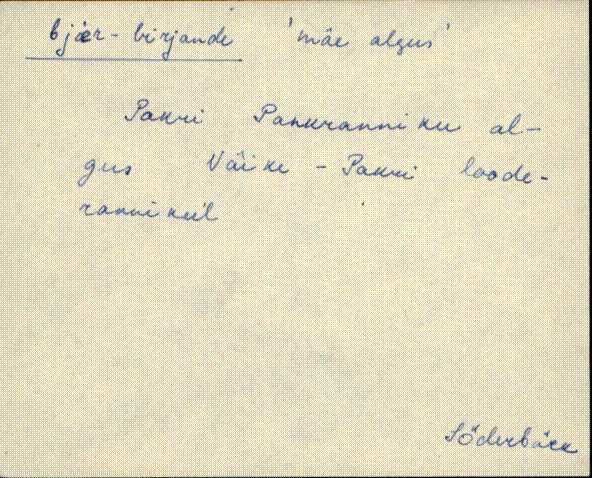 bjär-birjande 'mäe algus'
Pakri Pankranniku al-
gus Väike-Pakri loode-
rannikul
Söderbäck